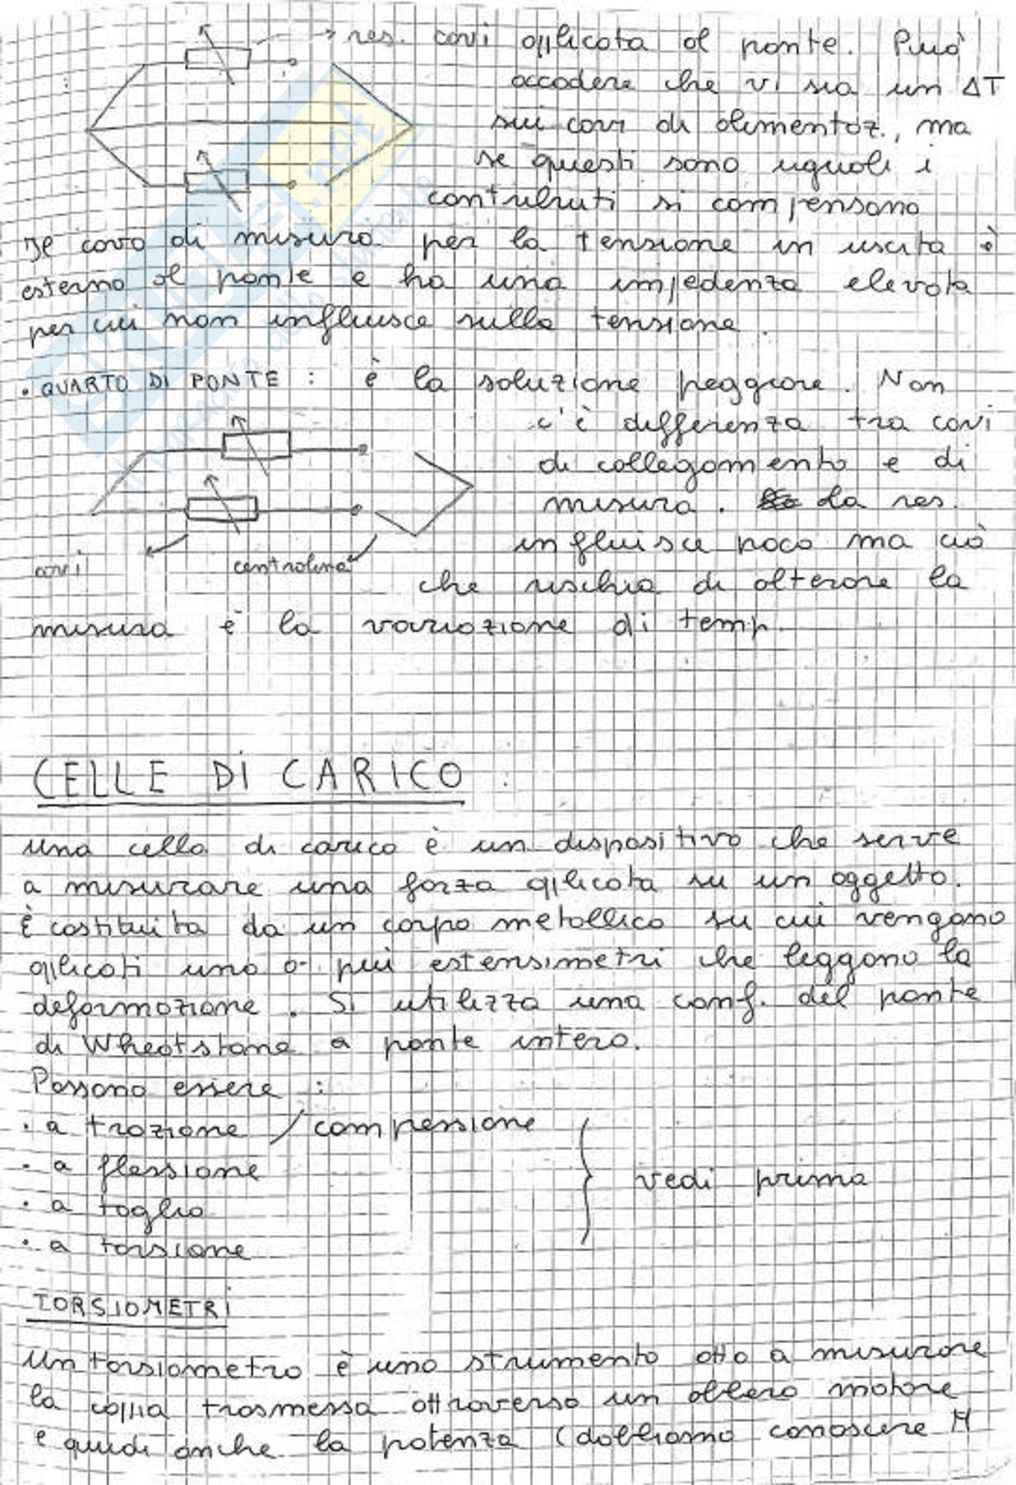 res. cavi applicata al ponte. Può
accadere che vi sia un ΔT
sui cavi di alimentaz., ma
se questi sono uguali i
contributi si compensano
Il cavo di misura per la tensione in uscita è
esterno al ponte e ha una impedenza elevata
per cui non influisce sulla tensione.
• QUARTO DI PONTE : è la soluzione peggiore. Non
c'è differenza tra cavi
di collegamento e di
misura. La res.
influisce poco ma ciò
cavi centralina
che rischia di alterare la
misura è la variazione di temp.
CELLE DI CARICO
una cella di carico è un dispositivo che serve
a misurare una forza applicata su un oggetto.
È costituita da un corpo metallico su cui vengono
applicati uno o più estensimetri che leggono la
deformazione. Si utilizza una conf. del ponte
di Wheatstone a ponte intero.
Possono essere :
• a trazione / compressione
• a flessione
vedi prima
• a taglio
• a torsione
TORSIOMETRI
Un torsiometro è uno strumento atto a misurare
la coppia trasmessa attraverso un albero motore
e quindi anche la potenza (dobbiamo conoscere M